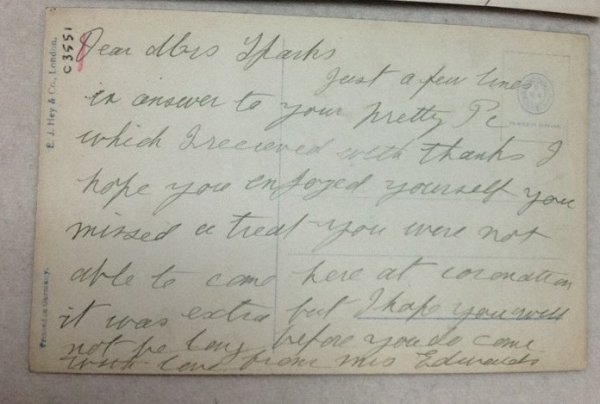 Dear Mrs Sparks
Just a few lines
in answer to your pretty Pc
which I recieved with thanks I
hope you enjoyed yourself you
missed a treat you were not
able to come here at coronation
it was extra but I hope you will
not be long before you do come
with love from Mrs Edwards
E. J. Hey & Co., London.
C3551
Printed in Germany.